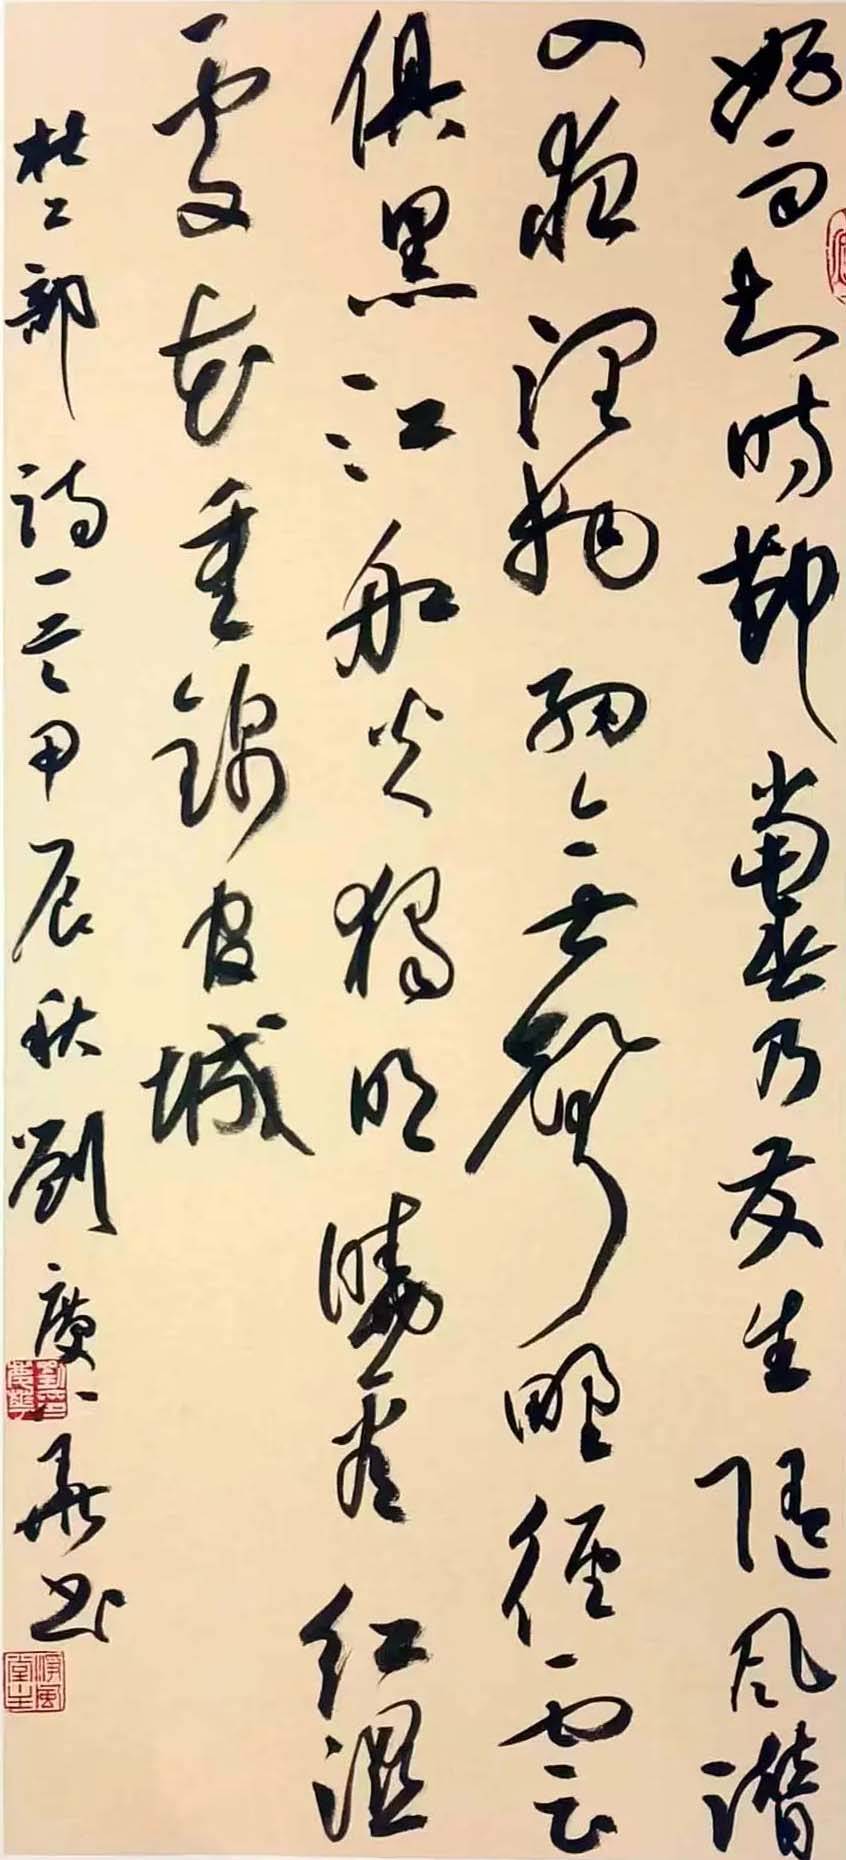 好雨知時節當春乃發生隨風潛
入夜潤物細無聲野徑雲
俱黑江船火獨明曉看紅濕
處花重錦官城
杜工部詩一首甲辰秋劉廣華書